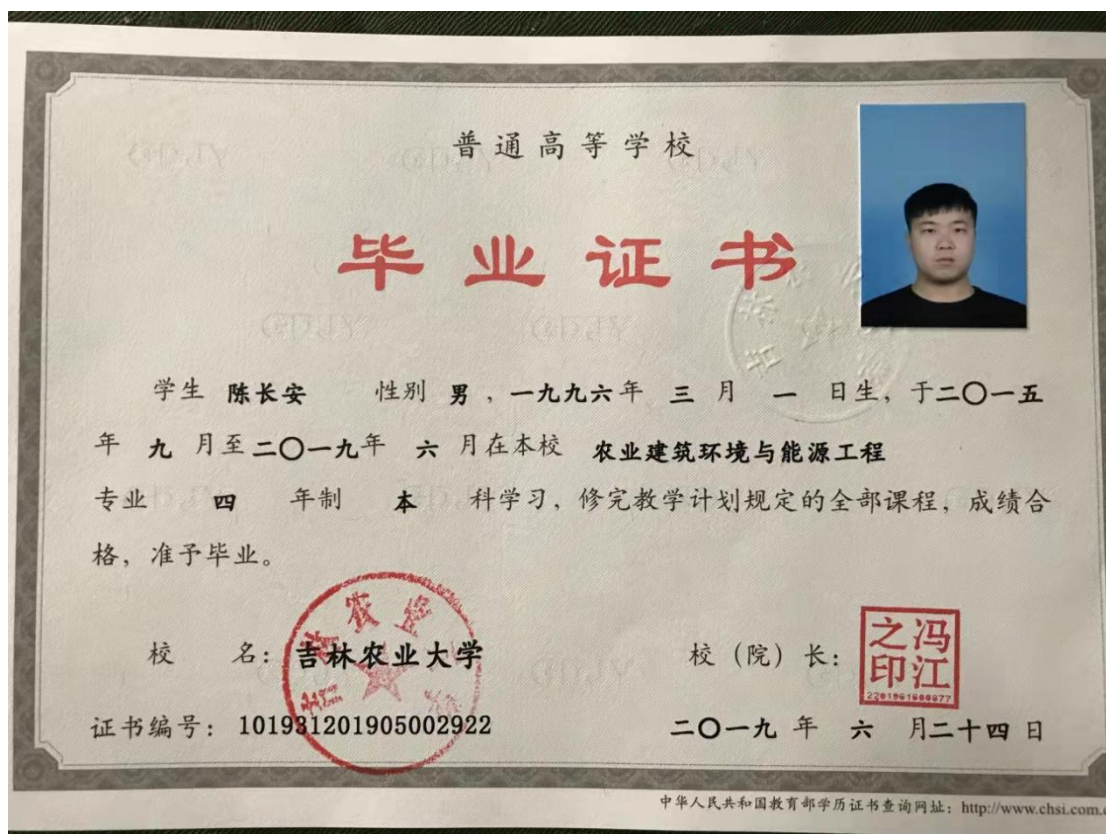 普通高等学校
毕业证书
学生 陈长安 性别 男 ，一九九六年 三 月 一 日生，于二〇一五
年 九 月至二〇一九年 六 月在本校 农业建筑环境与能源工程
专业 四 年制 本 科学习，修完教学计划规定的全部课程，成绩合
格，准予毕业。
校 名：吉林农业大学
校（院）长：
冯江之印
2201961600877
证书编号：101931201905002922
二〇一九 年 六 月二十四 日
中华人民共和国教育部学历证书查询网址：http://www.chsi.com.c